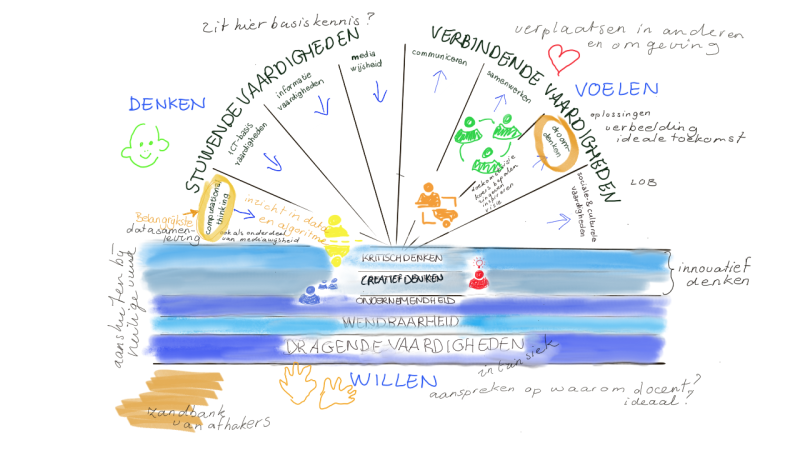 zit hier basiskennis?
verplaatsen in anderen
en omgeving
DENKEN
VOELEN
STUWENDE VAARDIGHEDEN
VERBINDENDE VAARDIGHEDEN
computational
thinking
ICT-basis
vaardigheden
informatie
vaardigheden
media
wijsheid
communiceren
samenwerken
droom-
denken
sociale- & culturele
vaardigheden
oplossingen
verbeelding
ideale toekomst
LOB
Belangrijkste
datasamen-
leving
inzicht in data
en algoritme
ook als onderdeel
van mediawijsheid
toekomstvisie
koers bepalen
visie
KRITISCH DENKEN
CREATIEF DENKEN
ONDERNEMENDHEID
WENDBAARHEID
DRAGENDE VAARDIGHEDEN
innovatief
denken
aansluiten bij
huidige vuur
intansiek
WILLEN
aanspreken op waarom docent?
ideaal?
zandbank
van afhakers